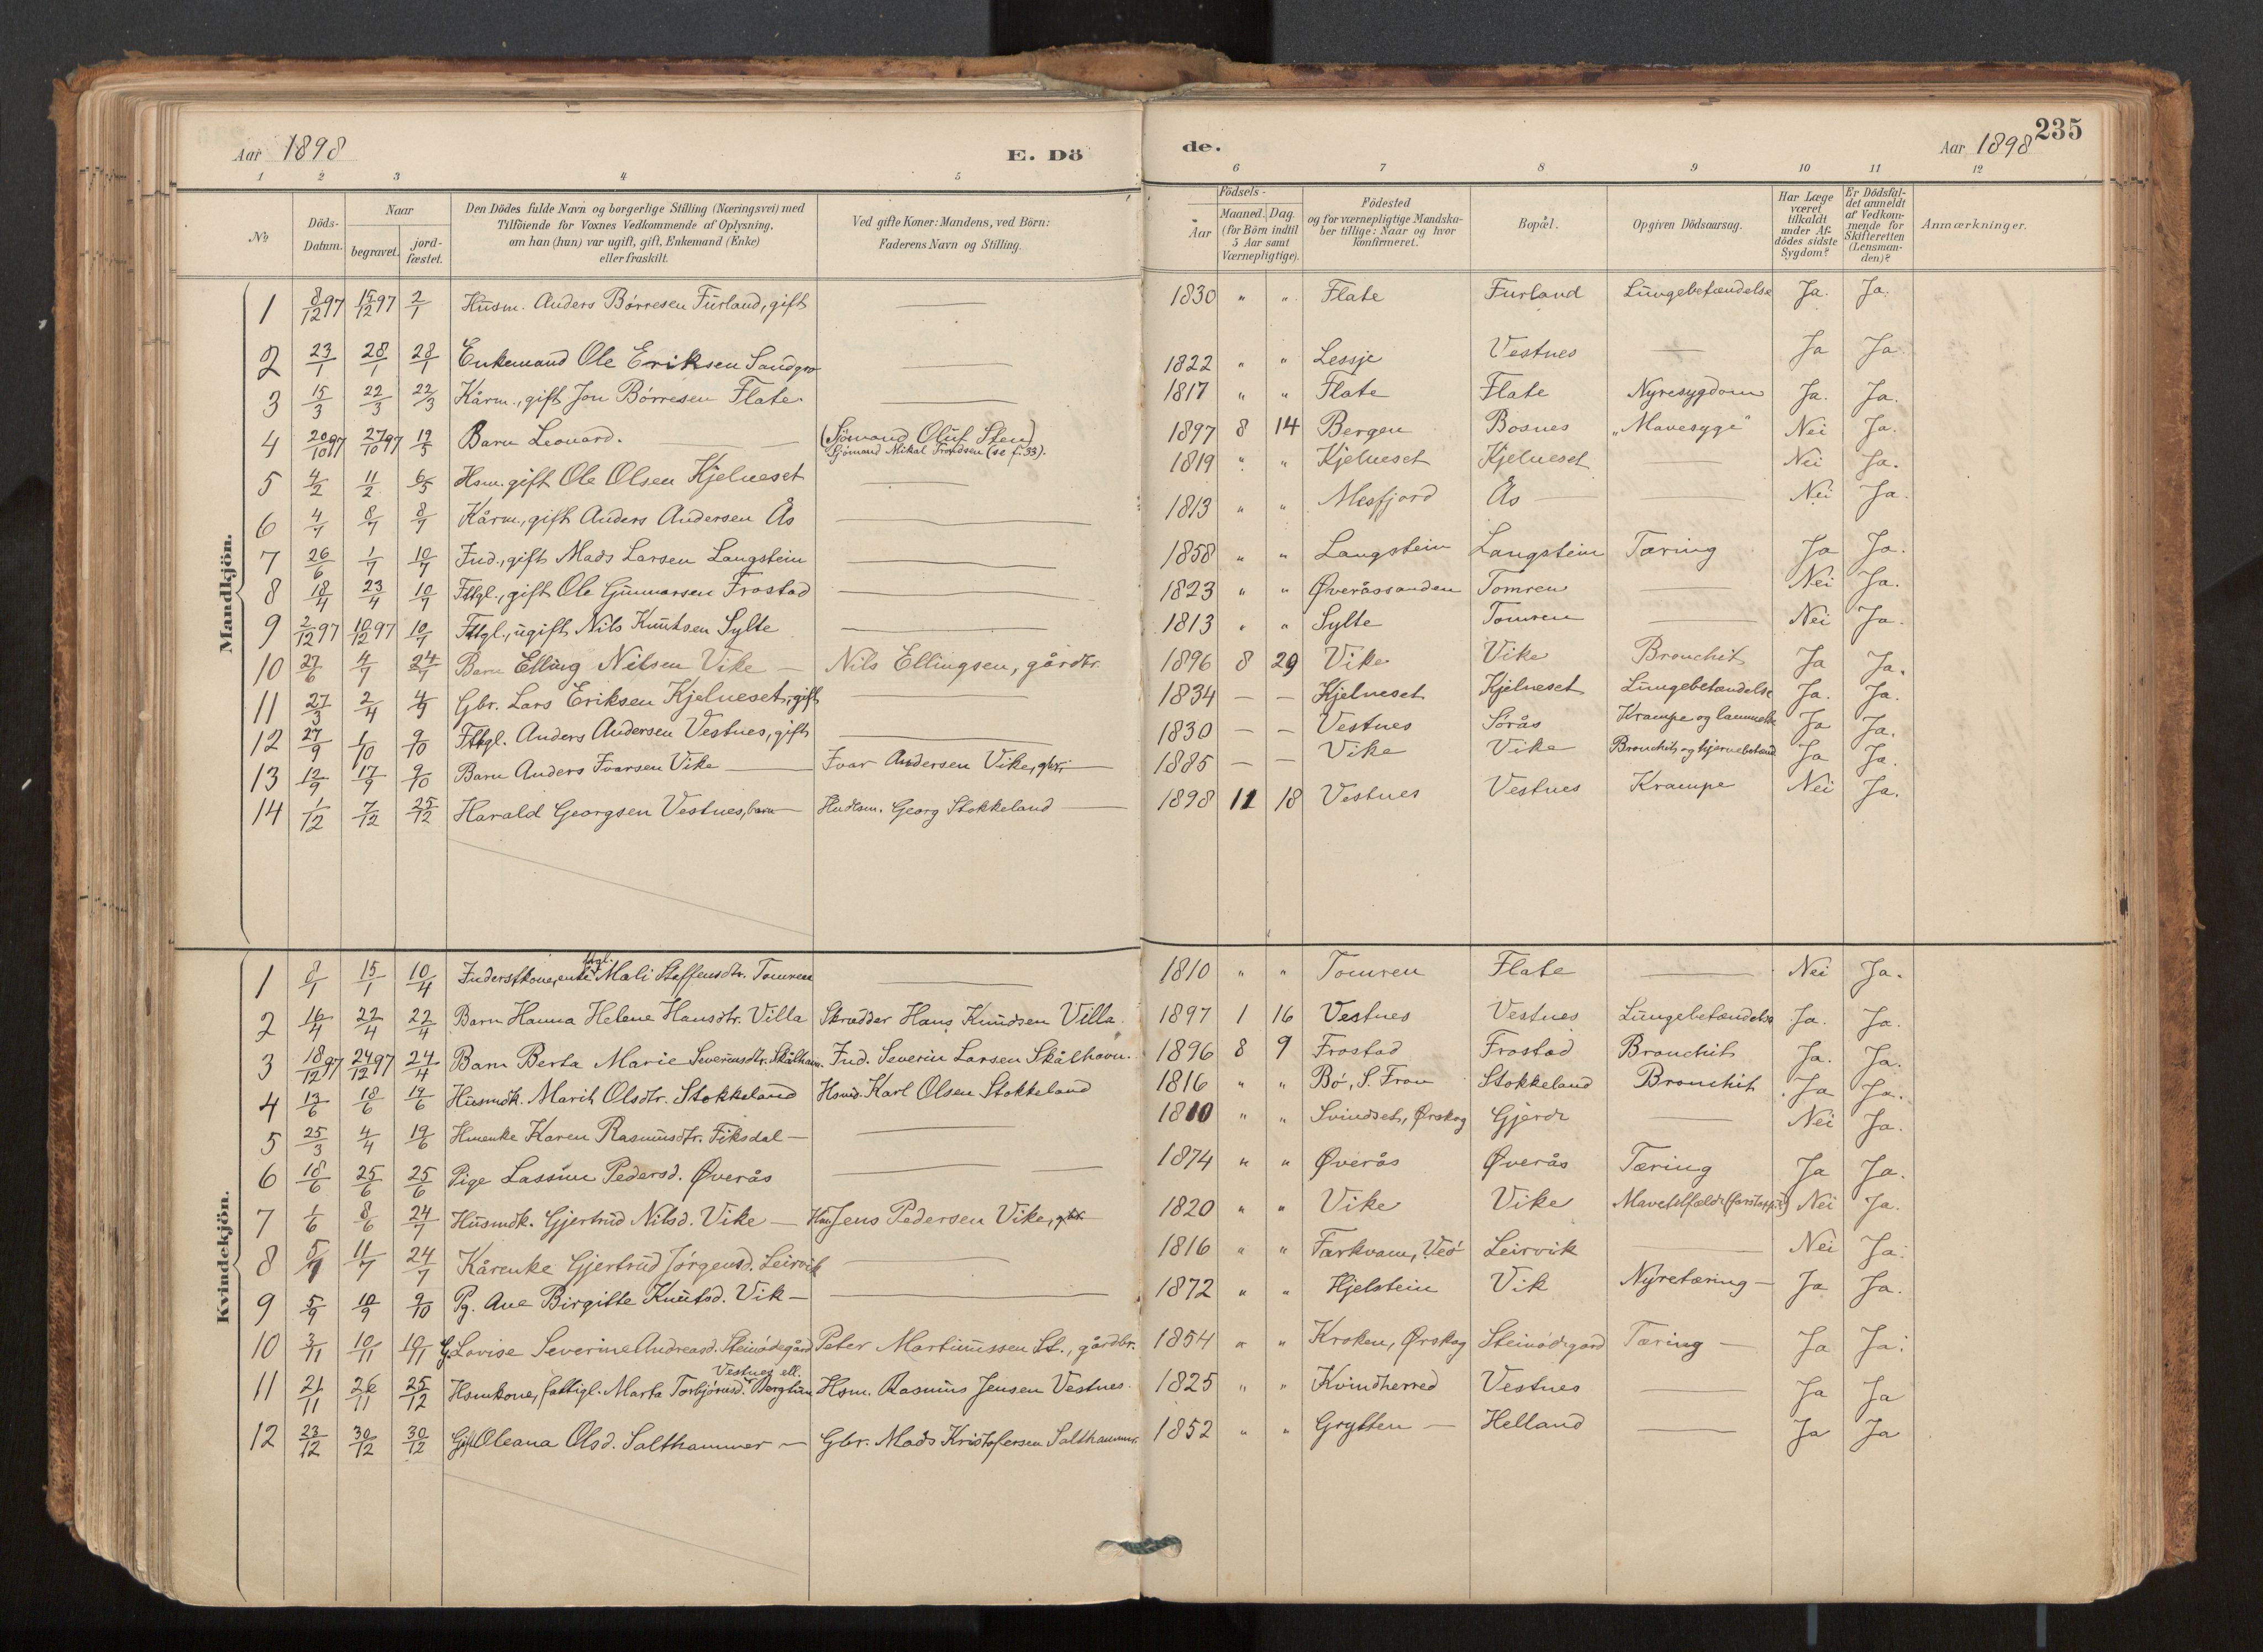 235
Aar 1898 E. Dö de. Aar 1898
1 2 3 4 5 6 7 8 9 10 11 12
№ Döds-Datum. Naar begravet. jord-fæstet. Den Dödes fulde Navn og borgerlige Stilling (Næringsvei) med Tilföiende for Voxnes Vedkommende af Oplysning, om han (hun) var ugift, gift, Enkemand (Enke) eller fraskilt. Ved gifte Koner: Mandens, ved Börn: Faderens Navn og Stilling. Födsels- Aar Maaned. Dag. (for Börn indtil 5 Aar samt Værnepligtige). Födested og for værnepligtige Mandskaber tillige: Naar og hvor konfirmeret. Bopæl. Opgiven Dödsaarsag. Har Læge været tilkaldt under Afdödes sidste Sygdom? Er Dödsfaldet anmeldt af Vedkommende for Skifteretten (Lensmanden)? Anmærkninger.
Mandkjön.
1 8/12 97 15/12 97 2/1 Husm. Anders Børresen Furland, gift — 1830 " " Flate Furland Lungebetændelse Ja. Ja.
2 23/1 28/1 28/1 Enkemand Ole Eriksen Sandgro — 1822 " " Lessje Vestnes — Ja Ja.
3 15/3 22/3 22/3 Kårm., gift Jon Børresen Flate — 1817 " " Flate Flate Nyresygdom Ja. Ja.
4 20/10 97 27/10 97 19/5 Barn Leonard. — (Sjömand Oluf Sten) 1897 8 14 Bergen Bosnes „Mavesyge" Nei Ja.
Sjömand Mikal Trondsen (se f. 33).
5 4/2 11/2 6/5 Hsm. gift Ole Olsen Kjelneset — 1819 " " Kjelneset Kjelneset — Nei Ja.
6 4/7 8/7 8/7 Kårm., gift Anders Andersen Ås — 1813 " " Mesfjord Ås — — Nei Ja.
7 26/6 1/7 10/7 Ind., gift Mads Larsen Langstein — 1858 " " Langstein Langstein Tæring Ja Ja.
8 18/4 23/4 10/7 Fttgl., gift Ole Gunnarsen Frostad — 1823 " " Øveråssanden Tomren — Nei Ja.
9 2/12 97 10/12 97 10/7 Fttgl., ugift Nils Knutsen Sylte — 1813 " " Sylte Tomren — Nei Ja.
10 27/6 4/7 24/7 Barn Elling Nilsen Vike — Nils Ellingsen, gårdbr. 1896 8 29 Vike Vike Bronchit Ja Ja.
11 27/3 2/4 4/9 Gbr. Lars Eriksen Kjelneset, gift — 1834 — — Kjelneset Kjelneset Lungebetændelse Ja. Ja.
12 27/9 1/10 9/10 Fttgl. Anders Andersen Vestnes, gift — 1830 — — Vestnes Sørås Krampe og lammelse Ja Ja.
13 12/9 17/9 9/10 Barn Anders Ivarsen Vike — Ivar Andersen Vike, gbr. — 1885 — — Vike Vike Bronchit og hjernebetænd Ja Ja.
14 1/12 7/12 25/12 Harald Georgsen Vestnes, barn — Hndlsm. Georg Stokkeland — 1898 11 18 Vestnes Vestnes Krampe Nei Ja.
Kvindekjön.
1 8/1 15/1 10/4 Inderstkone, enke Mali Steffensdtr. Tomren — 1810 " " Tomren Flate — Nei Ja.
2 16/4 22/4 22/4 Barn Hanna Helene Hansdtr. Villa Skrædder Hans Knudsen Villa. 1897 1 16 Vestnes Vestnes Lungebetændelse Ja. Ja.
3 18/12 97 24/12 97 24/4 Barn Berta Marie Severinsdtr. Skålhavn. Ind. Severin Larsen Skålhavn. 1896 8 9 Frostad Frostad Bronchit Ja. Ja.
4 13/6 18/6 19/6 Husmdk. Marit Olsdtr. Stokkeland Hsmd. Karl Olsen Stokkeland 1816 " " Bø, S. Fron Stokkeland Bronchit Ja Ja.
5 25/3 4/4 19/6 Hmenke Karen Rasmusdtr. Fiksdal — 1810 " " Svindset, Ørskog Gjerde — Nei Ja.
6 18/6 25/6 25/6 Pige Lassine Pedersd. Øverås — 1874 " " Øverås Øverås Tæring Ja Ja.
7 1/6 8/6 24/7 Husmdk. Gjertrud Nilsd. Vike — Jens Pedersen Vike, gbr. 1820 " " Vike Vike Mavetilfælde Nei Ja.
8 5/7 11/7 24/7 Kårenke Gjertrud Jørgensd. Leirvik — 1816 " " Farkvam, Veø Leirvik — Nei Ja.
9 5/9 10/9 9/10 Pg. Ane Birgitte Knutsd. Vik — 1872 " " Hjelstein Vik Nyretæring — Ja Ja.
10 3/11 10/11 10/11 G. Lovise Severine Andreasd. Steinødegård Peter Martinussen St., gårdbr. 1854 " " Kroken, Ørskog Steinødegård Tæring — Ja Ja.
Vestnes ell.
11 21/11 26/11 25/12 Hsmkone, fattigl. Marta Torbjørnsd. Berglien Hsm. Rasmus Jensen Vestnes. 1825 " " Kvindherred Vestnes — Ja Ja
12 23/12 30/12 30/12 Gift Oleana Olsd. Salthammer — Gbr. Mads Kristofersen Salthammer. 1852 " " Grytten — Helland — Ja Ja